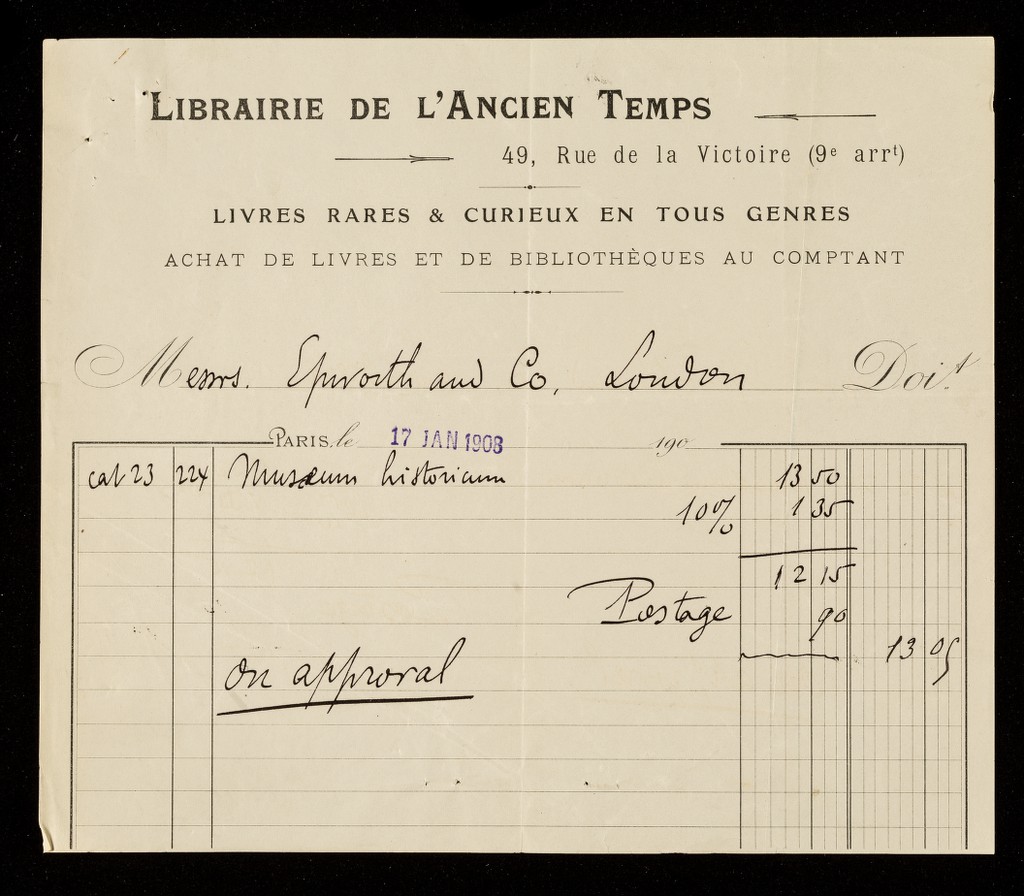 LIBRAIRIE DE L'ANCIEN TEMPS
49, Rue de la Victoire (9e arrt)
LIVRES RARES & CURIEUX EN TOUS GENRES
ACHAT DE LIVRES ET DE BIBLIOTHÈQUES AU COMPTANT
Messrs. Epworth and Co, London Doit
PARIS, le 17 JAN 1908 190
cat 23 224 Musaeum historicum 13 50
10% 1 35
12 15
Postage 90
13 05
on approval